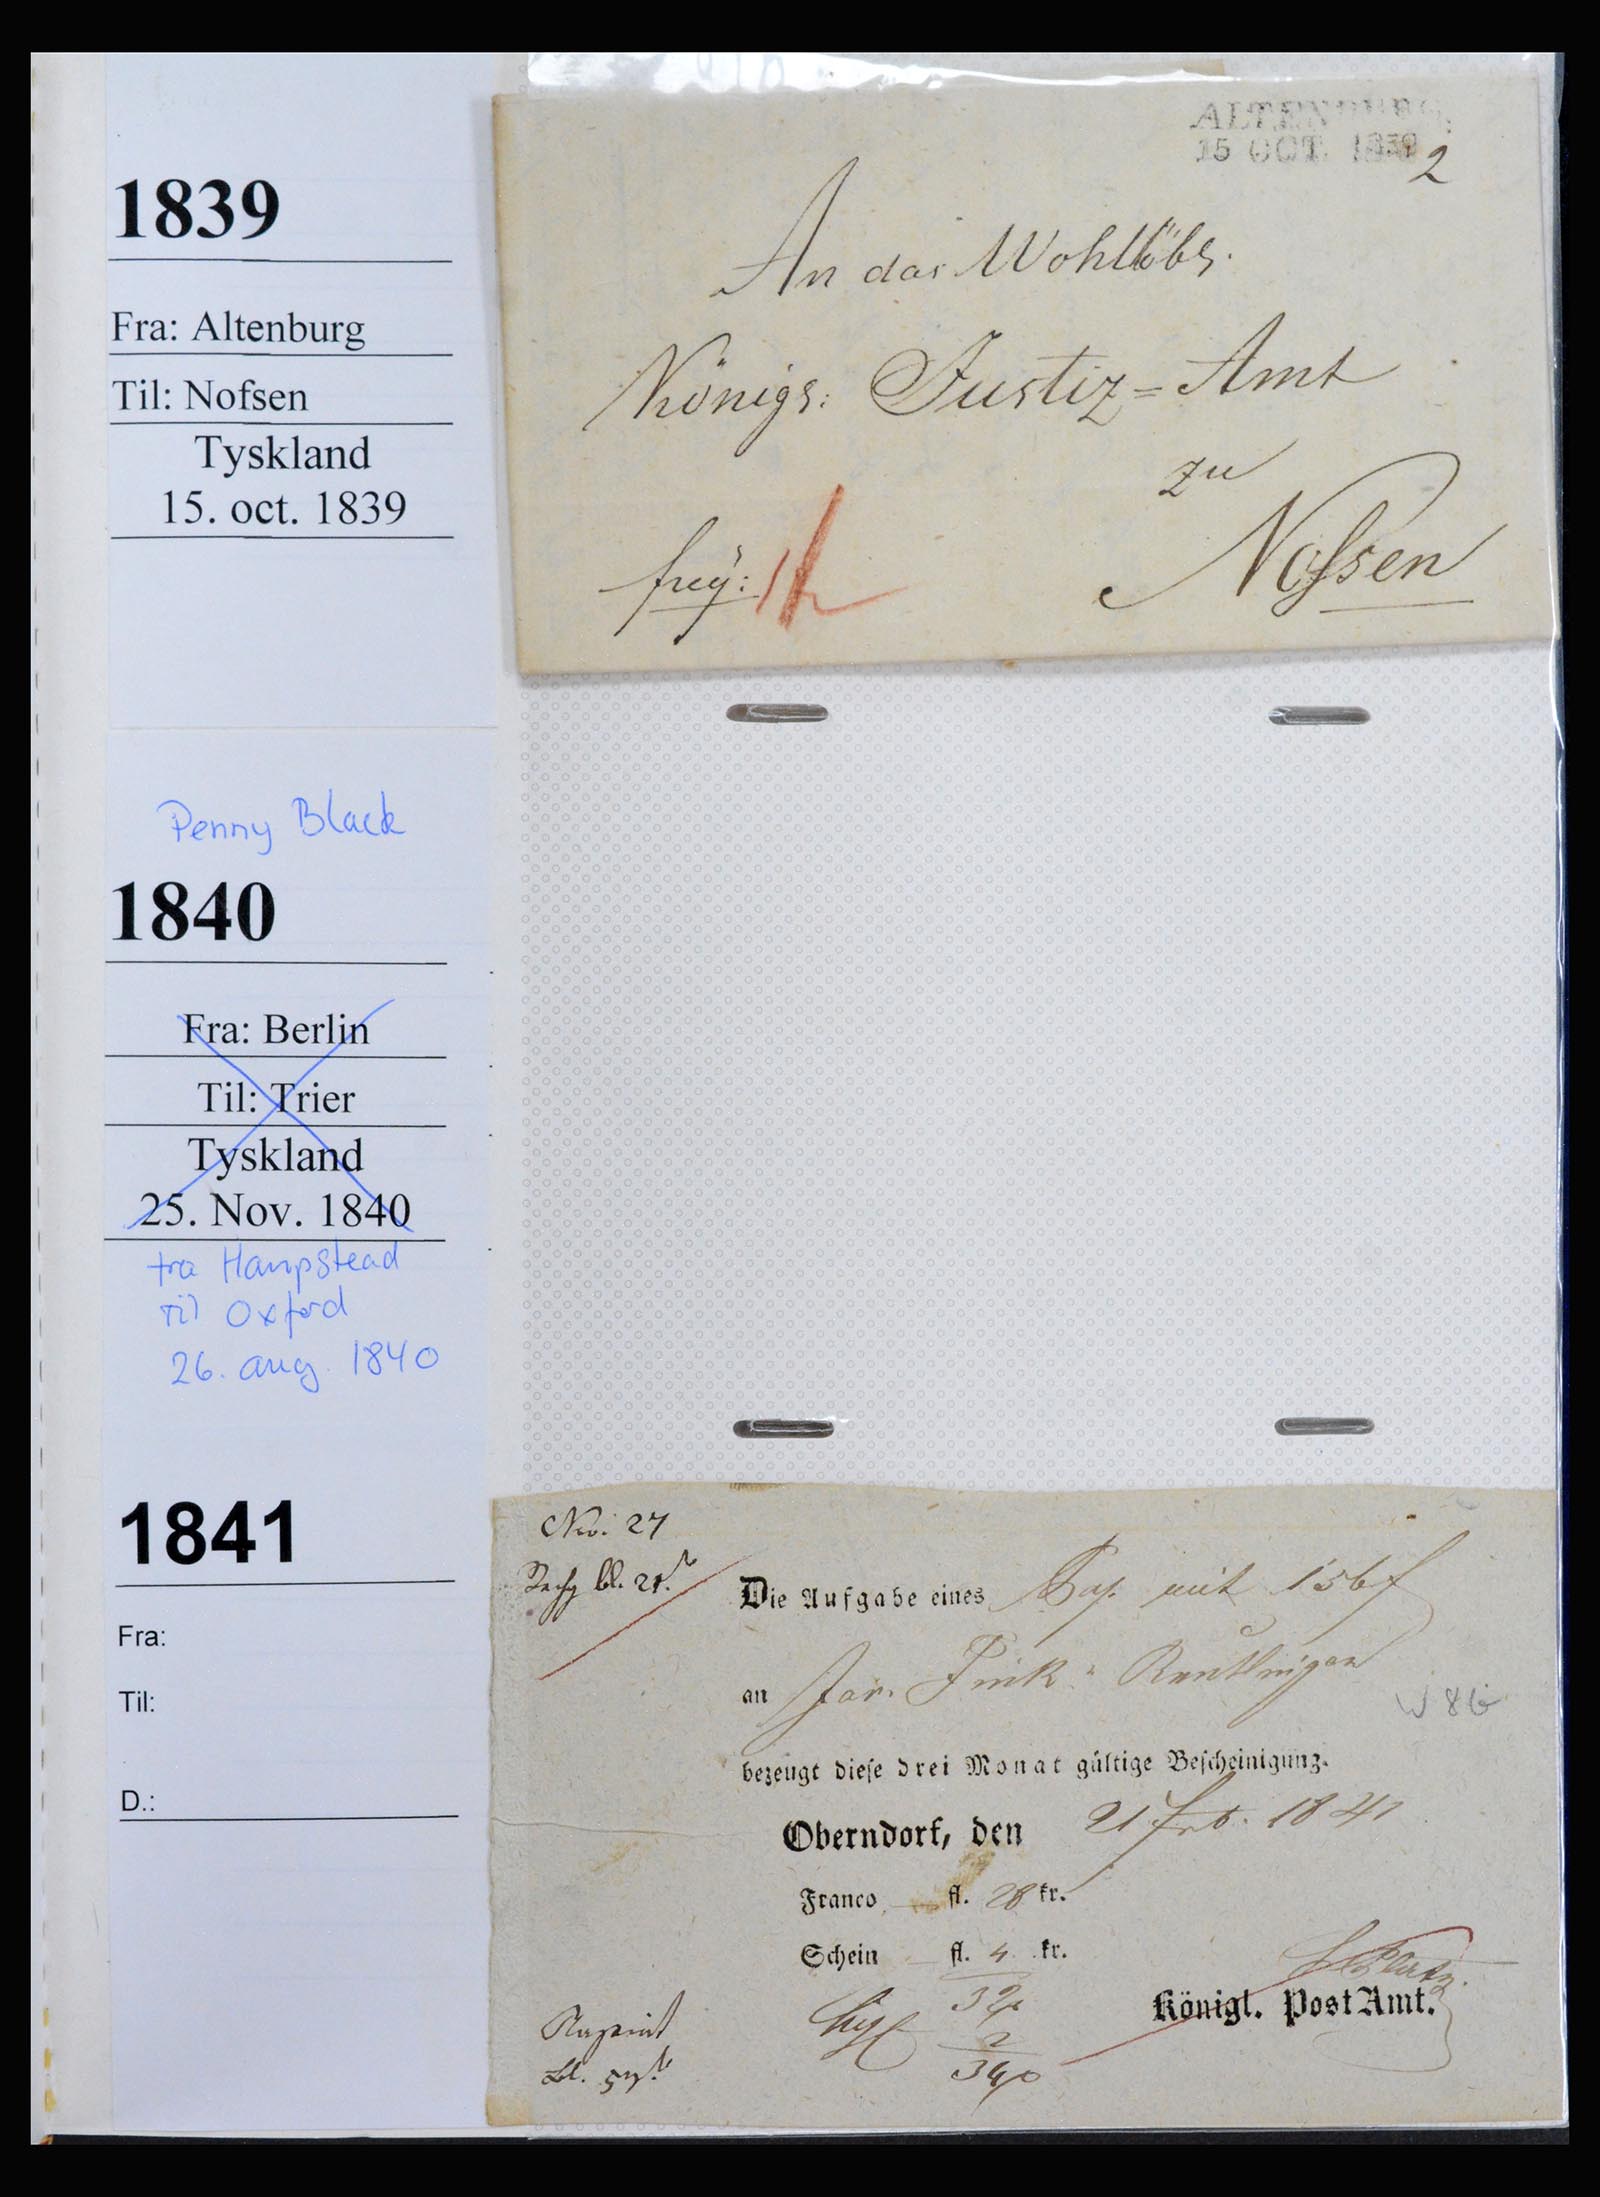 1839
Fra: Altenburg
Til: Nofsen
Tyskland
15. oct. 1839
ALTENBURG
15 OCT. 1839
2
An das Wohllöbl.
Königl: Justiz=Amt
zu
Nossen
frey:
Penny Black
1840
Fra: Berlin
Til: Trier
Tyskland
25. Nov. 1840
fra Hampstead
til Oxford
26. aug. 1840
1841
Fra:
Til:
D.:
Nro. 27
bl. 21.
Die Aufgabe eines Pap. mit 156 f
an Jos. Fink Reutlingen
W 86
bezeugt diese drei Monat gültige Bescheinigung.
Oberndorf, den 21 Feb. 1841
Franco — fl. 28 kr.
Schein — fl. 4 kr.
32
2
34
Königl. PostAmt.
bl.